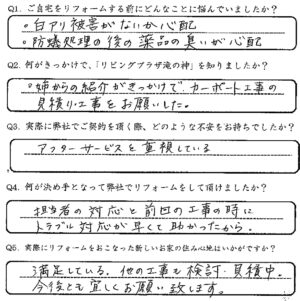 Q1. ご自宅をリフォームする前にどんなことに悩んでいましたか?
・白アリ被害がないか心配
・防蟻処理の後の薬品の臭いが心配
Q2. 何がきっかけで、「リビングプラザ滝の神」を知りましたか?
・姉からの紹介がきっかけで、カーポート工事の
見積り工事をお願いした。
Q3. 実際に弊社でご契約を頂く際、どのような不安をお持ちでしたか?
アフターサービスを重視している
Q4. 何が決め手となって弊社でリフォームをして頂けましたか?
担当者の対応と前回の工事の時に
トラブル対応が早くて助かったから。
Q5. 実際にリフォームをおこなった新しいお家の住み心地はいかがですか?
満足している。他の工事も検討・見積中。
今後とも宜しくお願い致します。